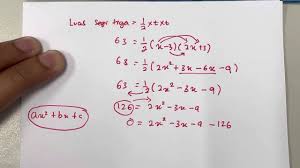 Luas segi tiga = 1/2 x t x t
63 = 1/2 (x-3)(2x+3)
63 = 1/2 (2x² + 3x - 6x - 9)
63 = 1/2 (2x² - 3x - 9)
126 = 2x² - 3x - 9
ax² + bx + c
0 = 2x² - 3x - 9 - 126